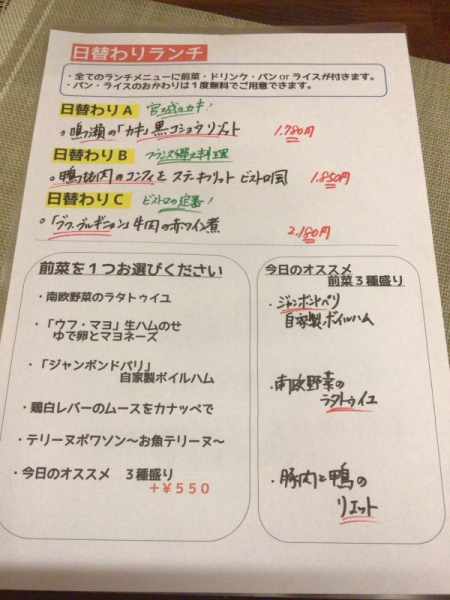 日替わりランチ
・全てのランチメニューに前菜・ドリンク・パン or ライスが付きます。
・パン・ライスのおかわりは１度無料でご用意できます。
日替わりＡ 宮城のカキ!
。鳴瀬の「カキ」黒コショウリゾット 1.780円
日替わりＢ フランス郷土料理
。鴨 肉のコンフィを ステーキカット ビストロ風 1.850円
日替わりＣ ビストロの定番!
。「ブフ・ブルギニョン」牛肉の赤ワイン煮 2.180円
前菜を１つお選びください
・南欧野菜のラタトゥイユ
・「ウフ・マヨ」生ハムのせ
ゆで卵とマヨネーズ
・「ジャンボンドパリ」
自家製ボイルハム
・鶏白レバーのムースをカナッペで
・テリーヌポワソン～お魚テリーヌ～
・今日のオススメ　３種盛り
＋￥５５０
今日のオススメ
前菜３種盛り
・ジャンボンドパリ
自家製ボイルハム
・南欧野菜の
ラタトゥイユ
・豚肉と鴨の
リエット